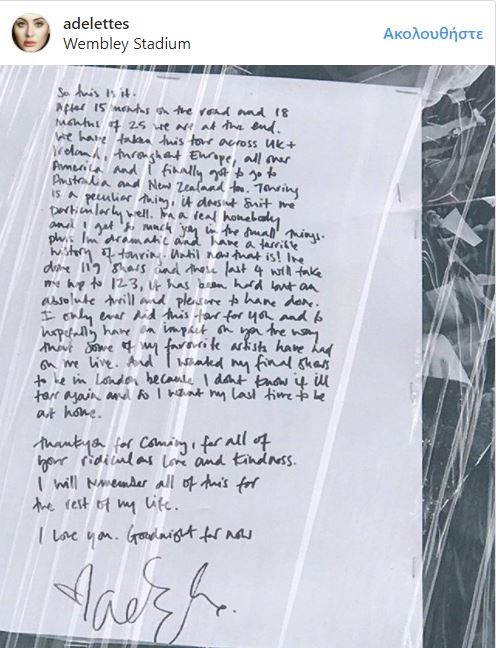 adelettes
Wembley Stadium
Ακολουθήστε
So this is it.
After 15 months on the road and 18
months of 25 we are at the end.
We have taken this tour across UK +
Ireland, throughout Europe, all over
America and I finally got to go to
Australia and New Zealand too. Touring
is a peculiar thing, it doesnt suit me
particularly well. Im a real homebody
and I get so much joy in the small things.
plus Im dramatic and have a terrible
history of touring. Until now that is! Ive
done 119 shows and these last 4 will take
me up to 123, it has been hard but an
absolute thrill and pleasure to have done.
I only ever did this tour for you and to
hopefully have an impact on you the way
that some of my favourite artists have had
on me live. And I wanted my final shows
to be in London because I dont know if ill
tour again and so I want my last time to be
at home.
Thankyou for coming, for all of
your ridiculous love and kindness.
I will remember all of this for
the rest of my life.
I love you. Goodnight for now